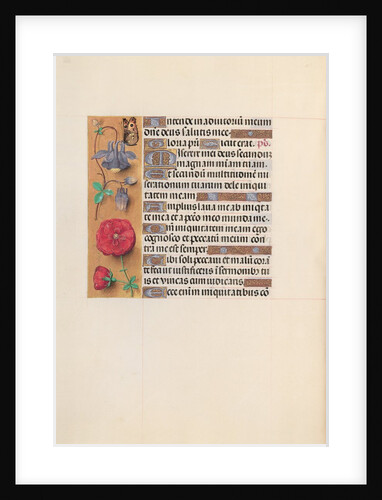 Intende in adiutorium meum
dne deus salutis mee.
Gloria pri Sicut erat. ps.
Miserere mei deus secundum
magnam miam tuam.
Et secundum multitudinem mi
serationum tuarum dele iniqui
tatem meam
Amplius laua me ab iniquita
te mea et a peccato meo munda me.
Quoniam iniquitatem meam ego
cognosco et peccatum meum con
tra me est semper
Tibi soli peccaui et malum coram
te feci ut iustificeris in sermonibus tu
is et vincas cum iudicaris
Ecce enim in iniquitatibus co